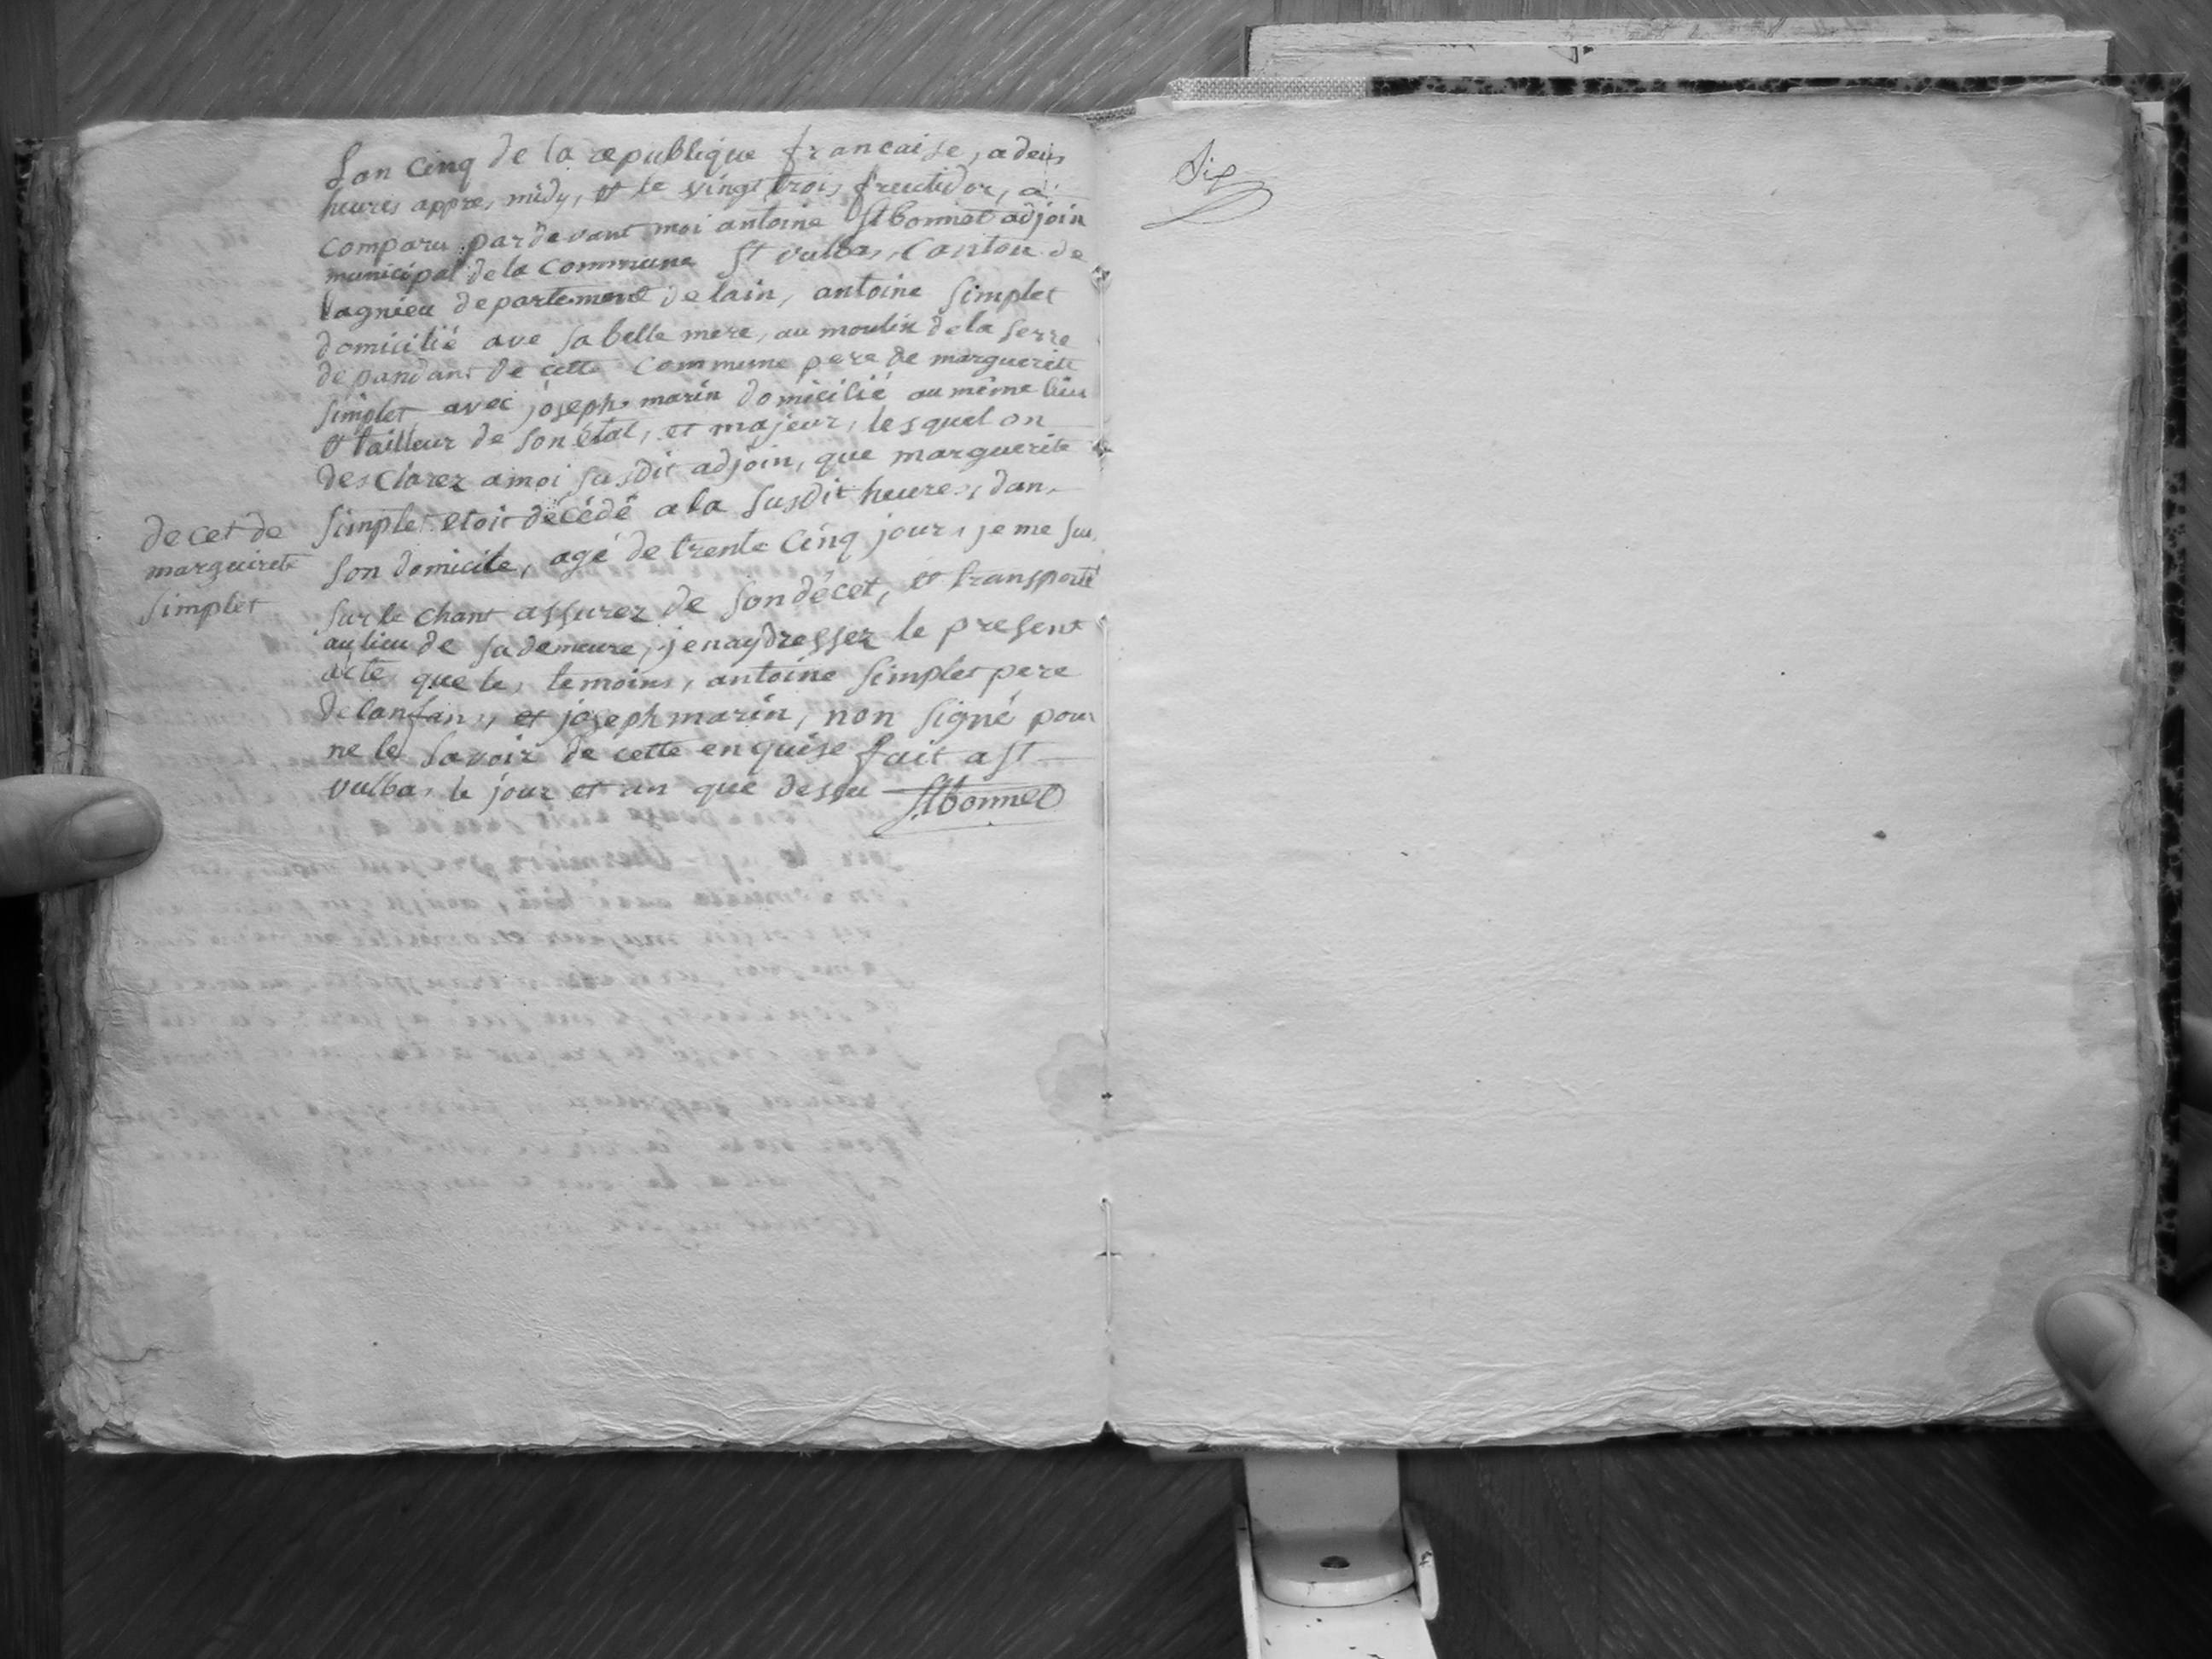 Lan cinq de la republique francaise, a deus
heures appres midy, et le vingt trois fructidor, a
comparu pardevant moi antoine St bonnet adjoin
municipal de la commune St vulbas, Canton de
lagnieu departement de lain, antoine Simplet
domicilié ave sa belle mere, au moulin de la serre
depandant de cette Commune pere de marguerite
Simplet avec joseph marin domicilié au même lieu
et tailleur de son état, et majeur, lesquel on
desclarez a moi susdit adjoin, que marguerite
Simplet etoit décédé a la susdit heures, dans
decet de
marguirete
simplet
son domicile, agé de trente cinq jours, je me suis
sur le chant assurez de son décet, et transporté
au lieu de sa demeure, jenay dresser le present
acte que les temoins, antoine Simplet pere
de lanfans, et joseph marin, non signé pour
ne le savoir de cette enquise fait a St
vulbas le jour et an que dessu Stbonnet